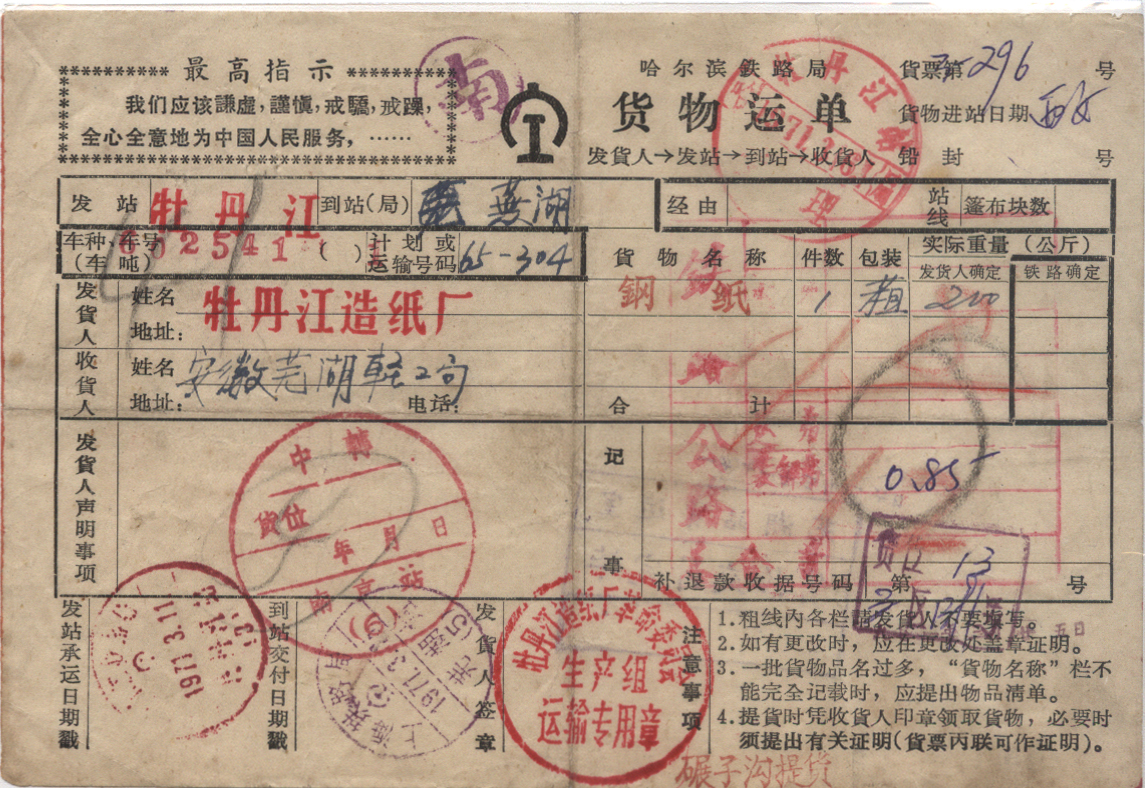 最高指示
我们应该謙虚，謹慎，戒驕，戒躁，
全心全意地为中国人民服务，……
南
哈尔滨鉄路局
货物运单
发货人→发站→到站→收货人
貨票第 296 号
貨物进站日期
铅封 号
发站 牡丹江 到站(局) 芜湖
经由 站线 篷布块数
车种、车号 602541
(车吨) ( )
计划或
运输号码 65-304
貨物名称 件数 包装 实际重量（公斤）
发货人确定 铁路确定
鋼纸 1 200
发货人
姓名 牡丹江造纸厂
地址：
收货人
姓名 安徽芜湖
地址： 电话：
合计
发货人声明事项
记事
0.85
中转
货位
年月日
南京站
货位 13
补退款收据号码 第 号
发站承运日期戳
1971.3.11
到站交付日期戳
1971.
发货人签章
牡丹江造纸厂革命委员会
生产组
运输专用章
注意事项
1.粗线內各栏請发貨人不要填写。
2.如有更改时，应在更改处盖章证明。
3.一批貨物品名过多，“貨物名称”栏不
能完全记载时，应提出物品清单。
4.提貨时凭收貨人印章领取貨物，必要时
须提出有关证明(貨票丙联可作证明)。
碾子沟提货